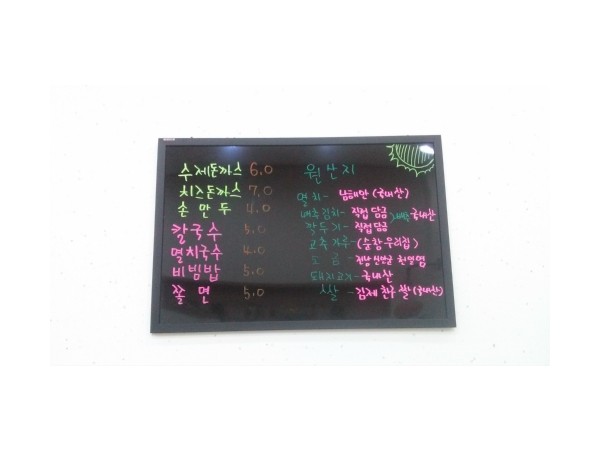 수제돈까스 6.0
치즈돈까스 7.0
손만두 4.0
칼국수 5.0
멸치국수 4.0
비빔밥 5.0
쫄면 5.0
원산지
멸치- 남해안 (국내산)
배추김치- 직접 담금 국내산
깍두기- 직접 담금
고추가루- (순창 우리집)
소금- 전남 신안군 천일염
돼지고기-국내산
쌀- 김제 친구 쌀 (국내산)